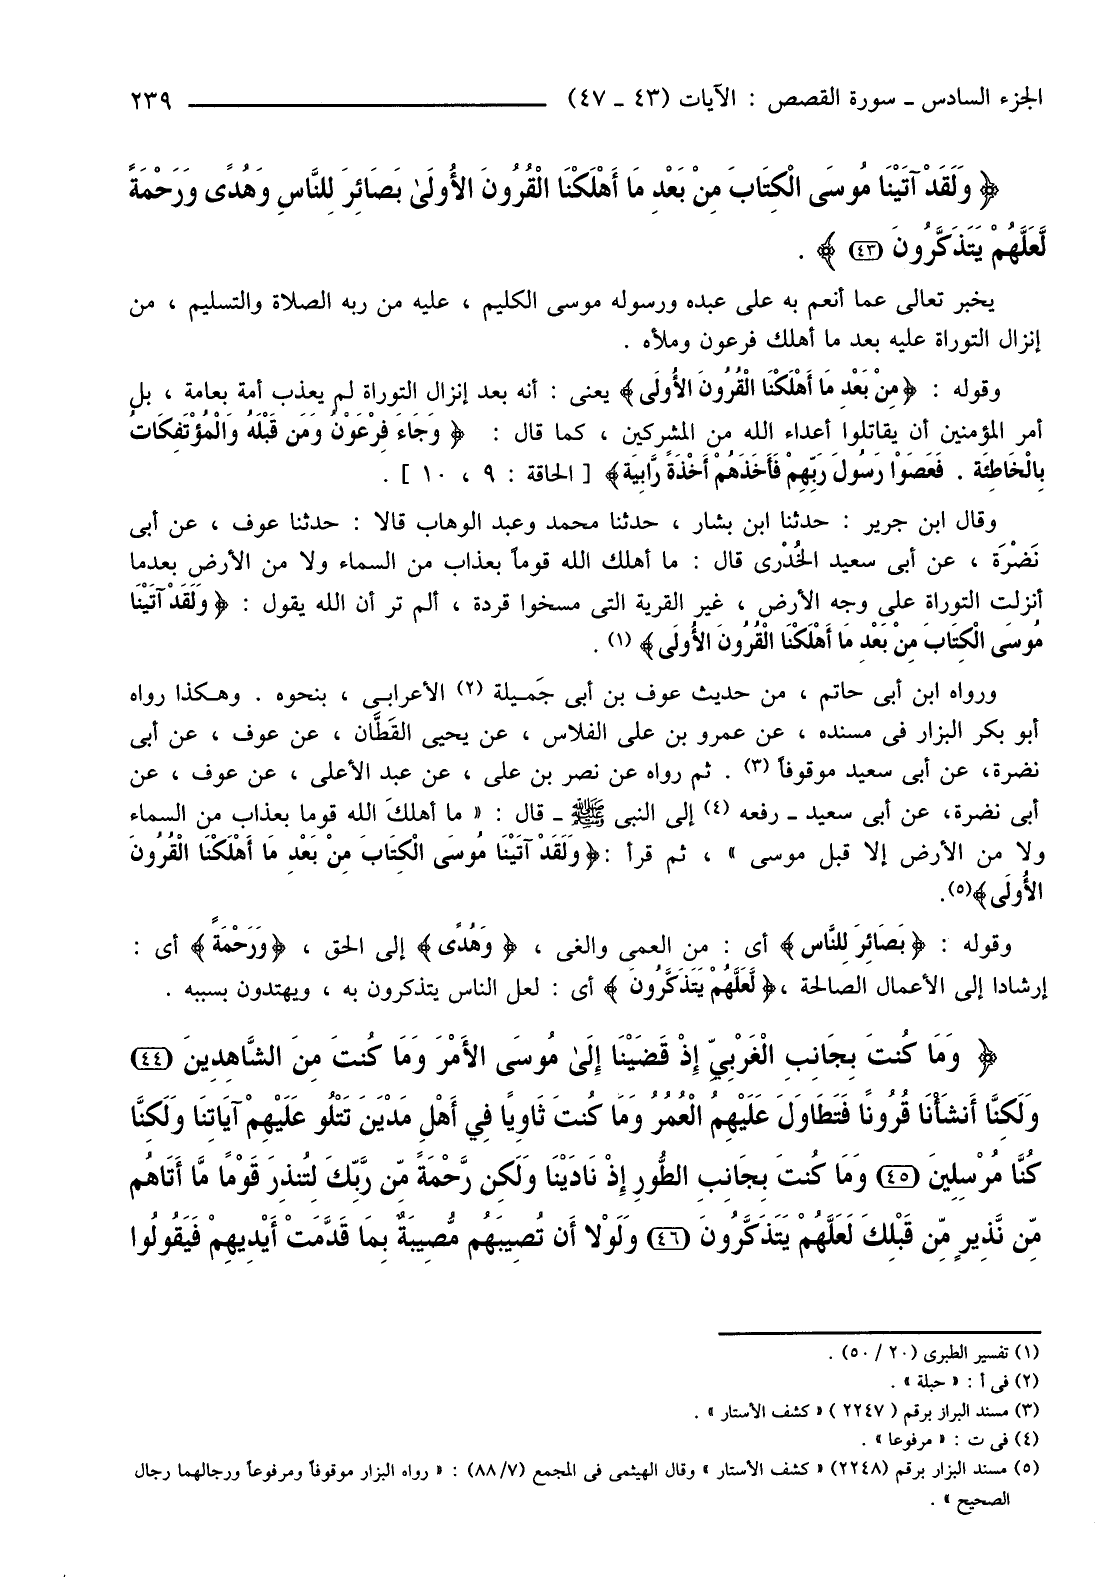 الجزء السادس ـ سورة القصص : الآيات (٤٣ ـ ٤٧) ٢٣٩
﴿ وَلَقَدْ آتَيْنَا مُوسَى الْكِتَابَ مِنْ بَعْدِ مَا أَهْلَكْنَا الْقُرُونَ الأُولَىٰ بَصَائِرَ لِلنَّاسِ وَهُدًى وَرَحْمَةً
لَّعَلَّهُمْ يَتَذَكَّرُونَ (٤٣) ﴾ .
يخبر تعالى عما أنعم به على عبده ورسوله موسى الكليم ، عليه من ربه الصلاة والتسليم ، من
إنزال التوراة عليه بعد ما أهلك فرعون وملأه .
وقوله : ﴿مِنْ بَعْدِ مَا أَهْلَكْنَا الْقُرُونَ الأُولَى﴾ يعنى : أنه بعد إنزال التوراة لم يعذب أمة بعامة ، بل
أمر المؤمنين أن يقاتلوا أعداء الله من المشركين ، كما قال : ﴿ وَجَاءَ فِرْعَوْنُ وَمَن قَبْلَهُ وَالْمُؤْتَفِكَاتُ
بِالْخَاطِئَة . فَعَصَوْا رَسُولَ رَبِّهِمْ فَأَخَذَهُمْ أَخْذَةً رَّابِيَة﴾ [ الحاقة : ٩ ، ١٠ ] .
وقال ابن جرير : حدثنا ابن بشار ، حدثنا محمد وعبد الوهاب قالا : حدثنا عوف ، عن أبى
نَضْرَة ، عن أبى سعيد الخُدْرى قال : ما أهلك الله قوماً بعذاب من السماء ولا من الأرض بعدما
أنزلت التوراة على وجه الأرض ، غير القرية التى مسخوا قردة ، ألم تر أن الله يقول : ﴿ وَلَقَدْ آتَيْنَا
مُوسَى الْكِتَابَ مِنْ بَعْدِ مَا أَهْلَكْنَا الْقُرُونَ الأُولَى﴾ (١) .
ورواه ابن أبى حاتم ، من حديث عوف بن أبى جَميلة (٢) الأعرابى ، بنحوه . وهكذا رواه
أبو بكر البزار فى مسنده ، عن عمرو بن على الفلاس ، عن يحيى القَطَّان ، عن عوف ، عن أبى
نضرة، عن أبى سعيد موقوفاً (٣) . ثم رواه عن نصر بن على ، عن عبد الأعلى ، عن عوف ، عن
أبى نضرة، عن أبى سعيد ـ رفعه (٤) إلى النبى ﷺ ـ قال : « ما أهلكَ الله قوما بعذاب من السماء
ولا من الأرض إلا قبل موسى » ، ثم قرأ :﴿ وَلَقَدْ آتَيْنَا مُوسَى الْكِتَابَ مِنْ بَعْدِ مَا أَهْلَكْنَا الْقُرُونَ
الأُولَى﴾(٥).
وقوله : ﴿ بَصَائِرَ لِلنَّاسِ ﴾ أى : من العمى والغى ، ﴿ وَهُدًى ﴾ إلى الحق ، ﴿ وَرَحْمَةً ﴾ أى :
إرشادا إلى الأعمال الصالحة ،﴿ لَّعَلَّهُمْ يَتَذَكَّرُونَ ﴾ أى : لعل الناس يتذكرون به ، ويهتدون بسببه .
﴿ وَمَا كُنتَ بِجَانِبِ الْغَرْبِيِّ إِذْ قَضَيْنَا إِلَىٰ مُوسَى الأَمْرَ وَمَا كُنتَ مِنَ الشَّاهِدِينَ (٤٤)
وَلَكِنَّا أَنشَأْنَا قُرُونًا فَتَطَاوَلَ عَلَيْهِمُ الْعُمُرُ وَمَا كُنتَ ثَاوِيًا فِي أَهْلِ مَدْيَنَ تَتْلُو عَلَيْهِمْ آيَاتِنَا وَلَكِنَّا
كُنَّا مُرْسِلِينَ (٤٥) وَمَا كُنتَ بِجَانِبِ الطُّورِ إِذْ نَادَيْنَا وَلَكِن رَّحْمَةً مِّن رَّبِّكَ لِتُنذِرَ قَوْمًا مَّا أَتَاهُم
مِّن نَّذِيرٍ مِّن قَبْلِكَ لَعَلَّهُمْ يَتَذَكَّرُونَ (٤٦) وَلَوْلا أَن تُصِيبَهُم مُّصِيبَةٌ بِمَا قَدَّمَتْ أَيْدِيهِمْ فَيَقُولُوا
(١) تفسير الطبرى (٢٠ / ٥٠) .
(٢) فى أ : « حبلة » .
(٣) مسند البراز برقم ( ٢٢٤٧ ) « كشف الأستار » .
(٤) فى ت : « مرفوعا » .
(٥) مسند البزار برقم (٢٢٤٨) « كشف الأستار » وقال الهيثمى فى المجمع (٧/ ٨٨) : « رواه البزار موقوفاً ومرفوعاً ورجالهما رجال
الصحيح » .